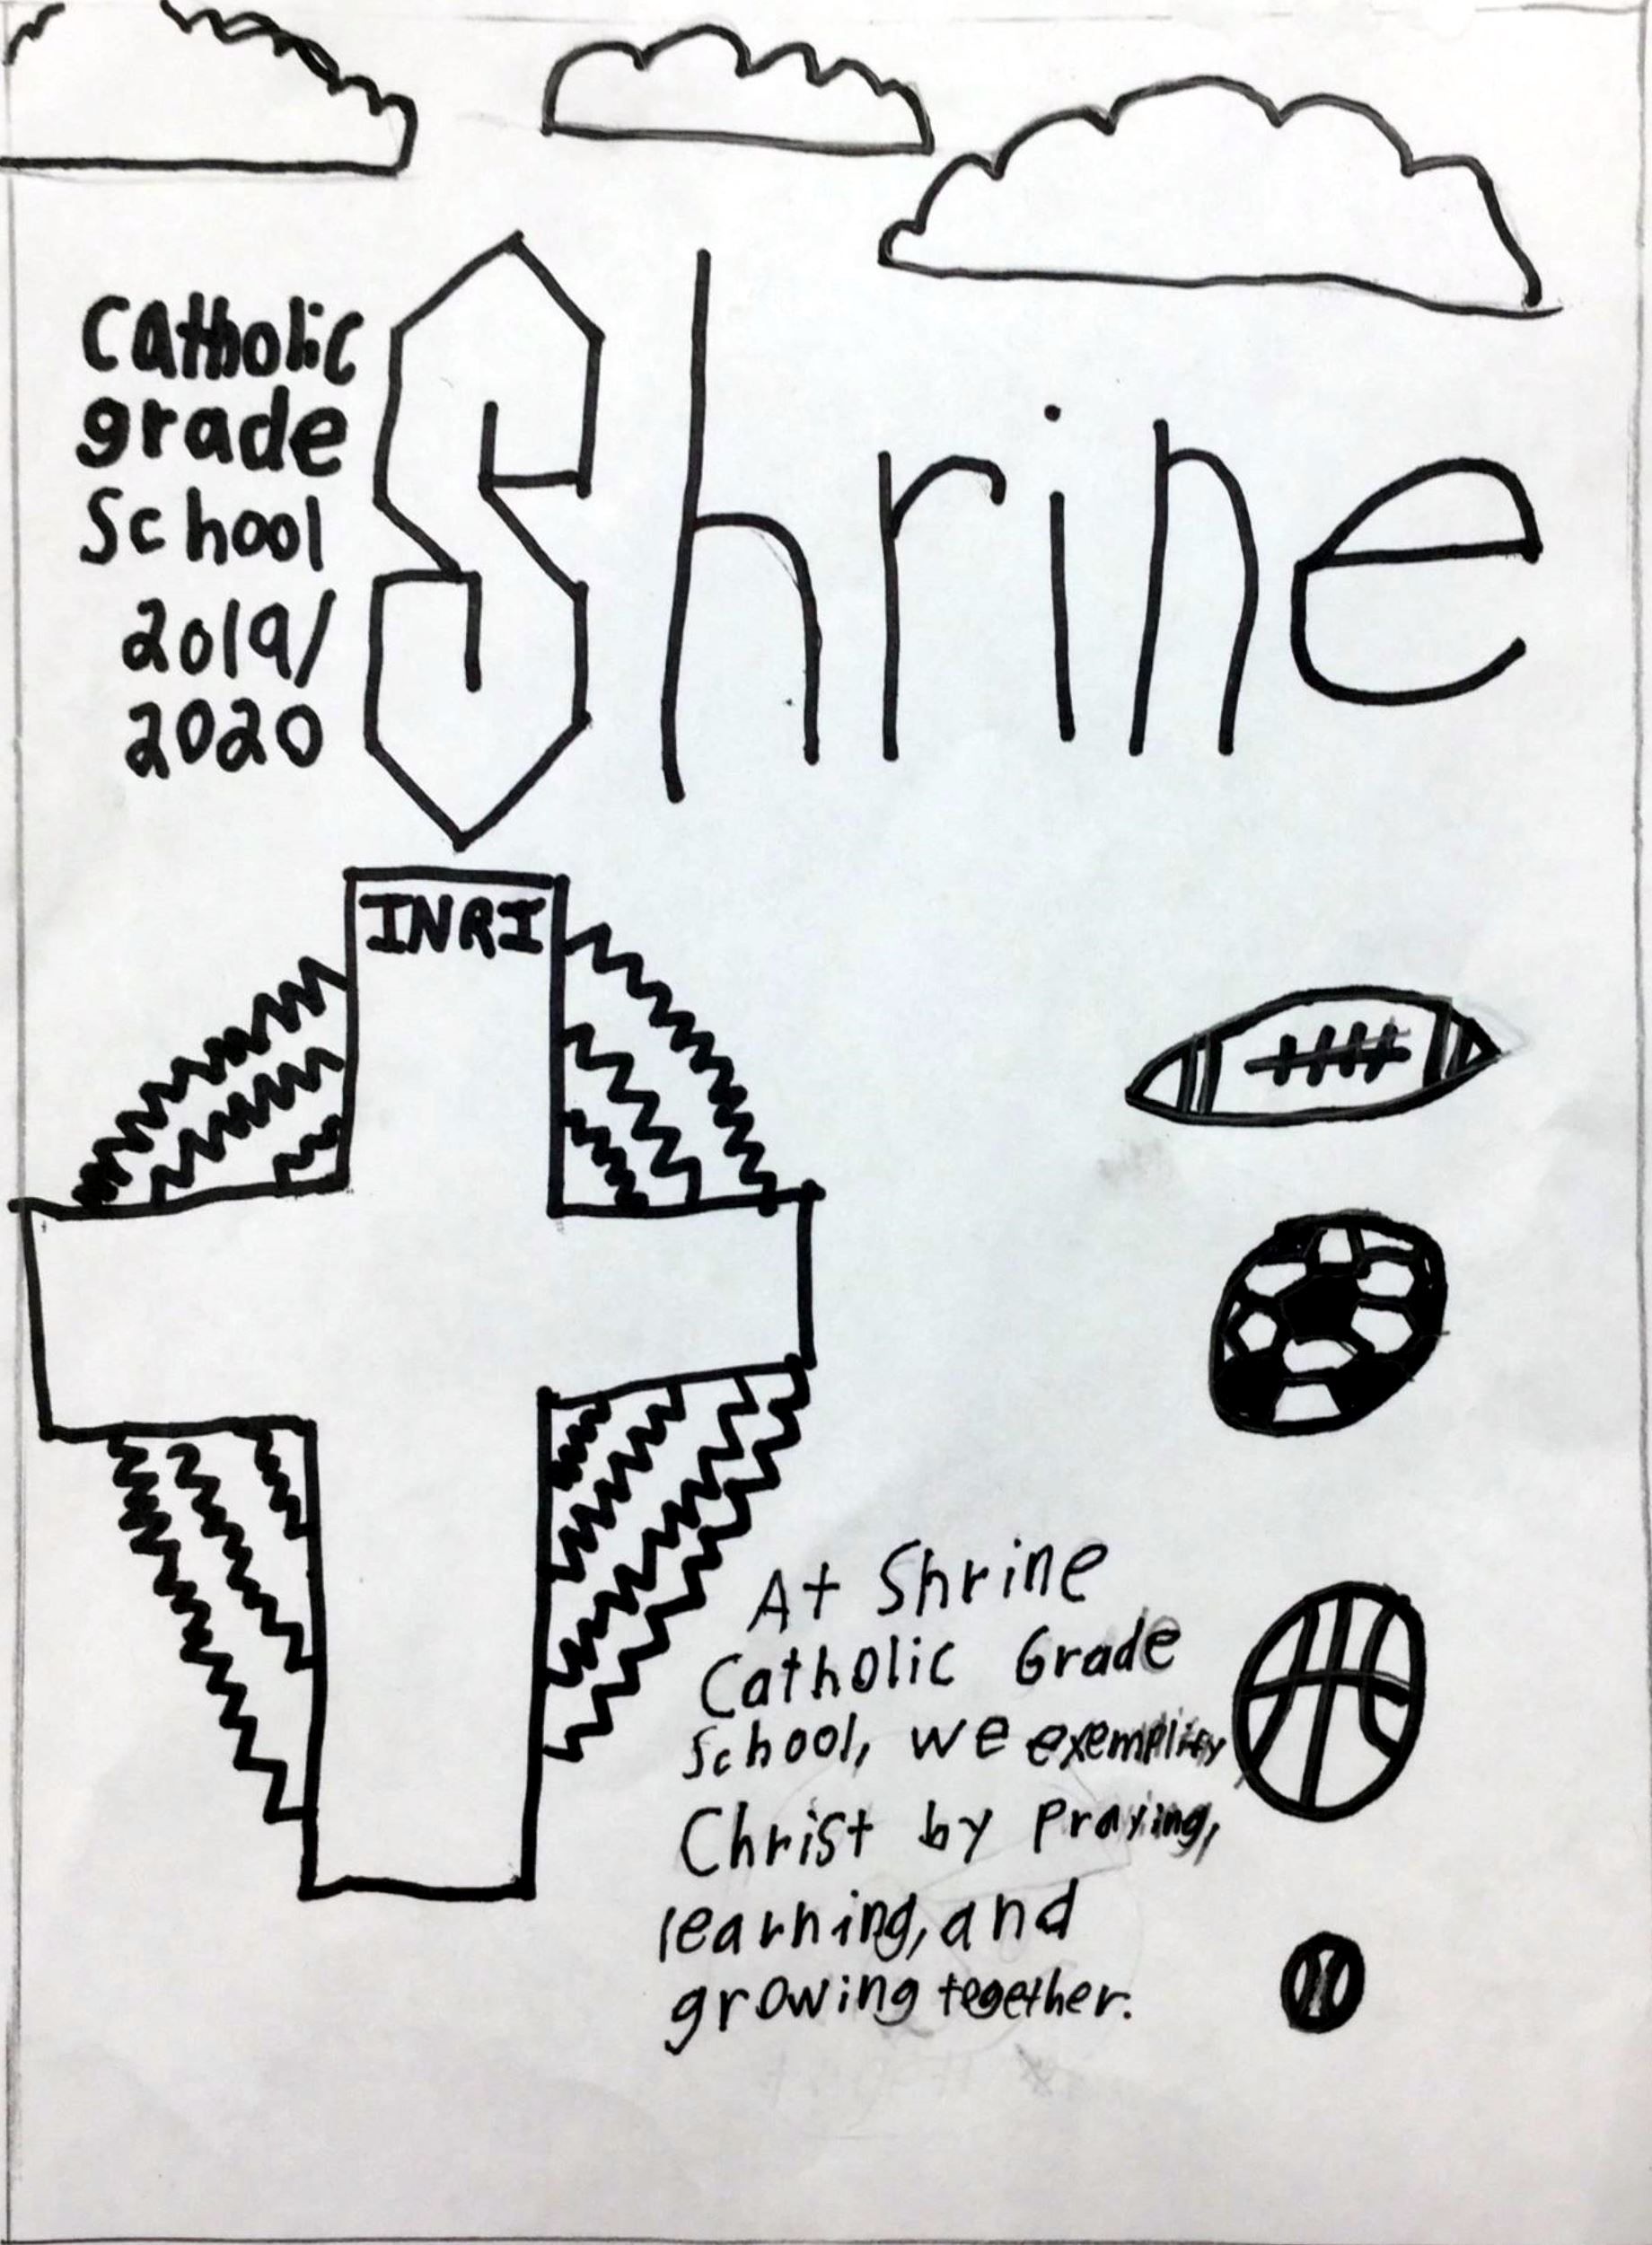 Catholic
grade
School
2019/
2020
Shrine
INRI
At Shrine
Catholic Grade
School, we exemplify
Christ by Praying,
learning, and
growing together.